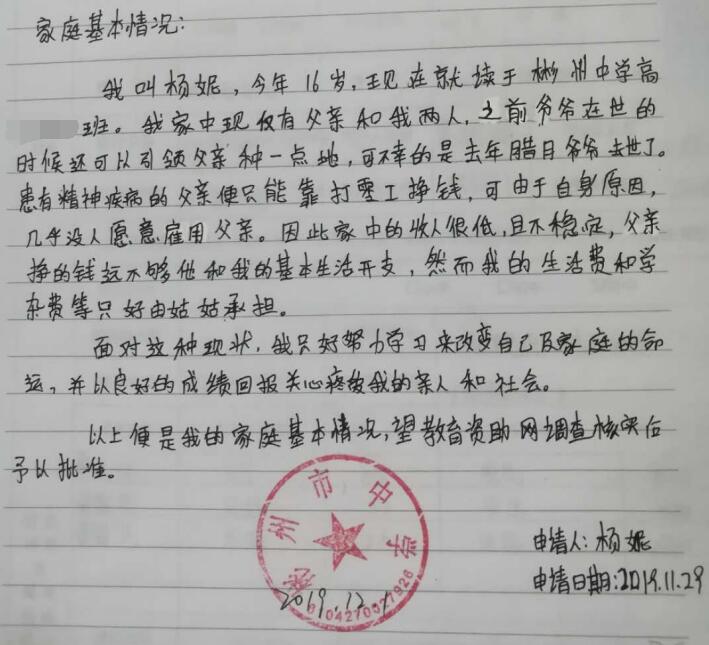 家庭基本情况：
我叫杨妮，今年16岁，现在就读于彬州中学高
班。我家中现仅有父亲和我两人，之前爷爷在世的
时候还可以引领父亲种一点地，可不幸的是去年腊月爷爷去世了。
患有精神疾病的父亲便只能靠打零工挣钱，可由于自身原因，
几乎没人愿意雇用父亲。因此家中的收入很低，且不稳定，父亲
挣的钱远不够他和我的基本生活开支，然而我的生活费和学
杂费等只好由姑姑承担。
面对这种现状，我只好努力学习来改变自己及家庭的命
运，并以良好的成绩回报关心疼爱我的亲人和社会。
以上便是我的家庭基本情况，望教育资助网调查核实后
予以批准。
彬州市中学
申请人：杨妮
申请日期：2019.11.29
2019.12.
6104270027926